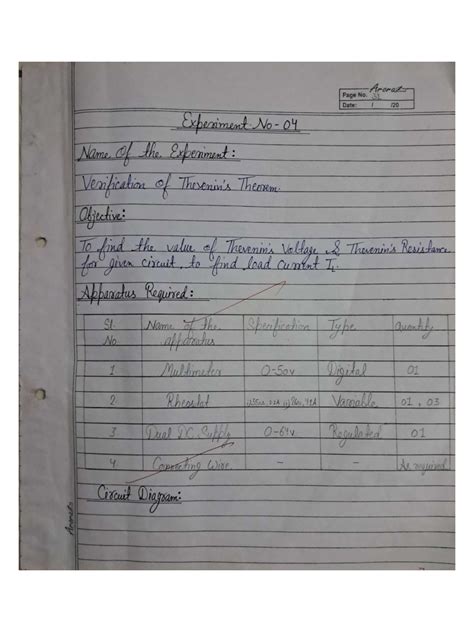 Page No. 31
Date: / /20
Experiment No-04
Name Of the Experiment:
Verification of Thevenin's Theorem
Objective:
To find the value of Thevenin's Voltage & Thevenin's Resistance
for given circuit, to find load current IL
Apparatus Required:
Sl. No Name of the apparatus Specification Type Quantity
1 Multimeter 0-50v Digital 01
2. Rheostat Variable 01, 03
3. Dual DC Supply 0-64v Regulated 01
4 Connecting Wire - - As required
Circuit Diagram: